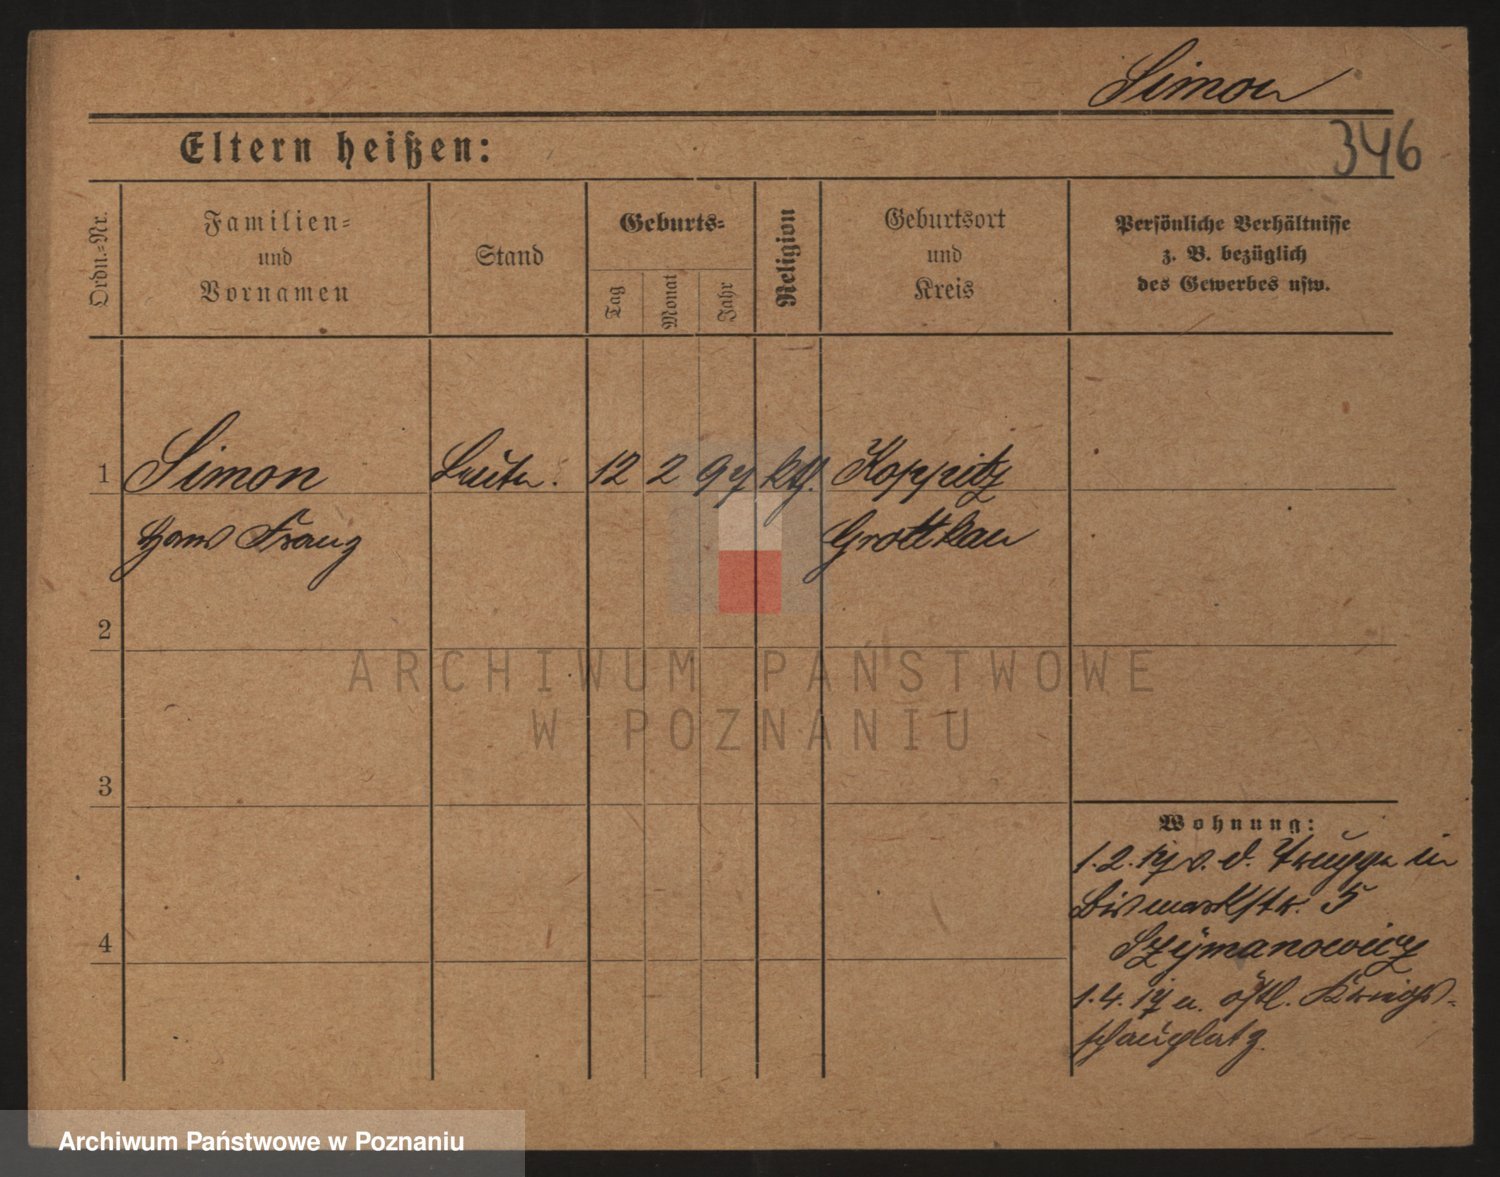 Simon
346
Eltern heißen:
Ordn.=Nr.
Familien=
und
Vornamen
Stand
Geburts=
Tag
Monat
Jahr
Religion
Geburtsort
und
Kreis
Persönliche Verhältnisse
z. B. bezüglich
des Gewerbes usw.
1 Simon Leutn. 12 2 97 kth. Koppitz
Hans Franz Grottkau
2
3
4
Wohnung:
1.2.17 v. d. Truppe in
Bismarkstr. 5
Szymanowicz
1.4.17 n. östl. Kriegs=
schauplatz.
ARCHIWUM PAŃSTWOWE
W POZNANIU
Archiwum Państwowe w Poznaniu